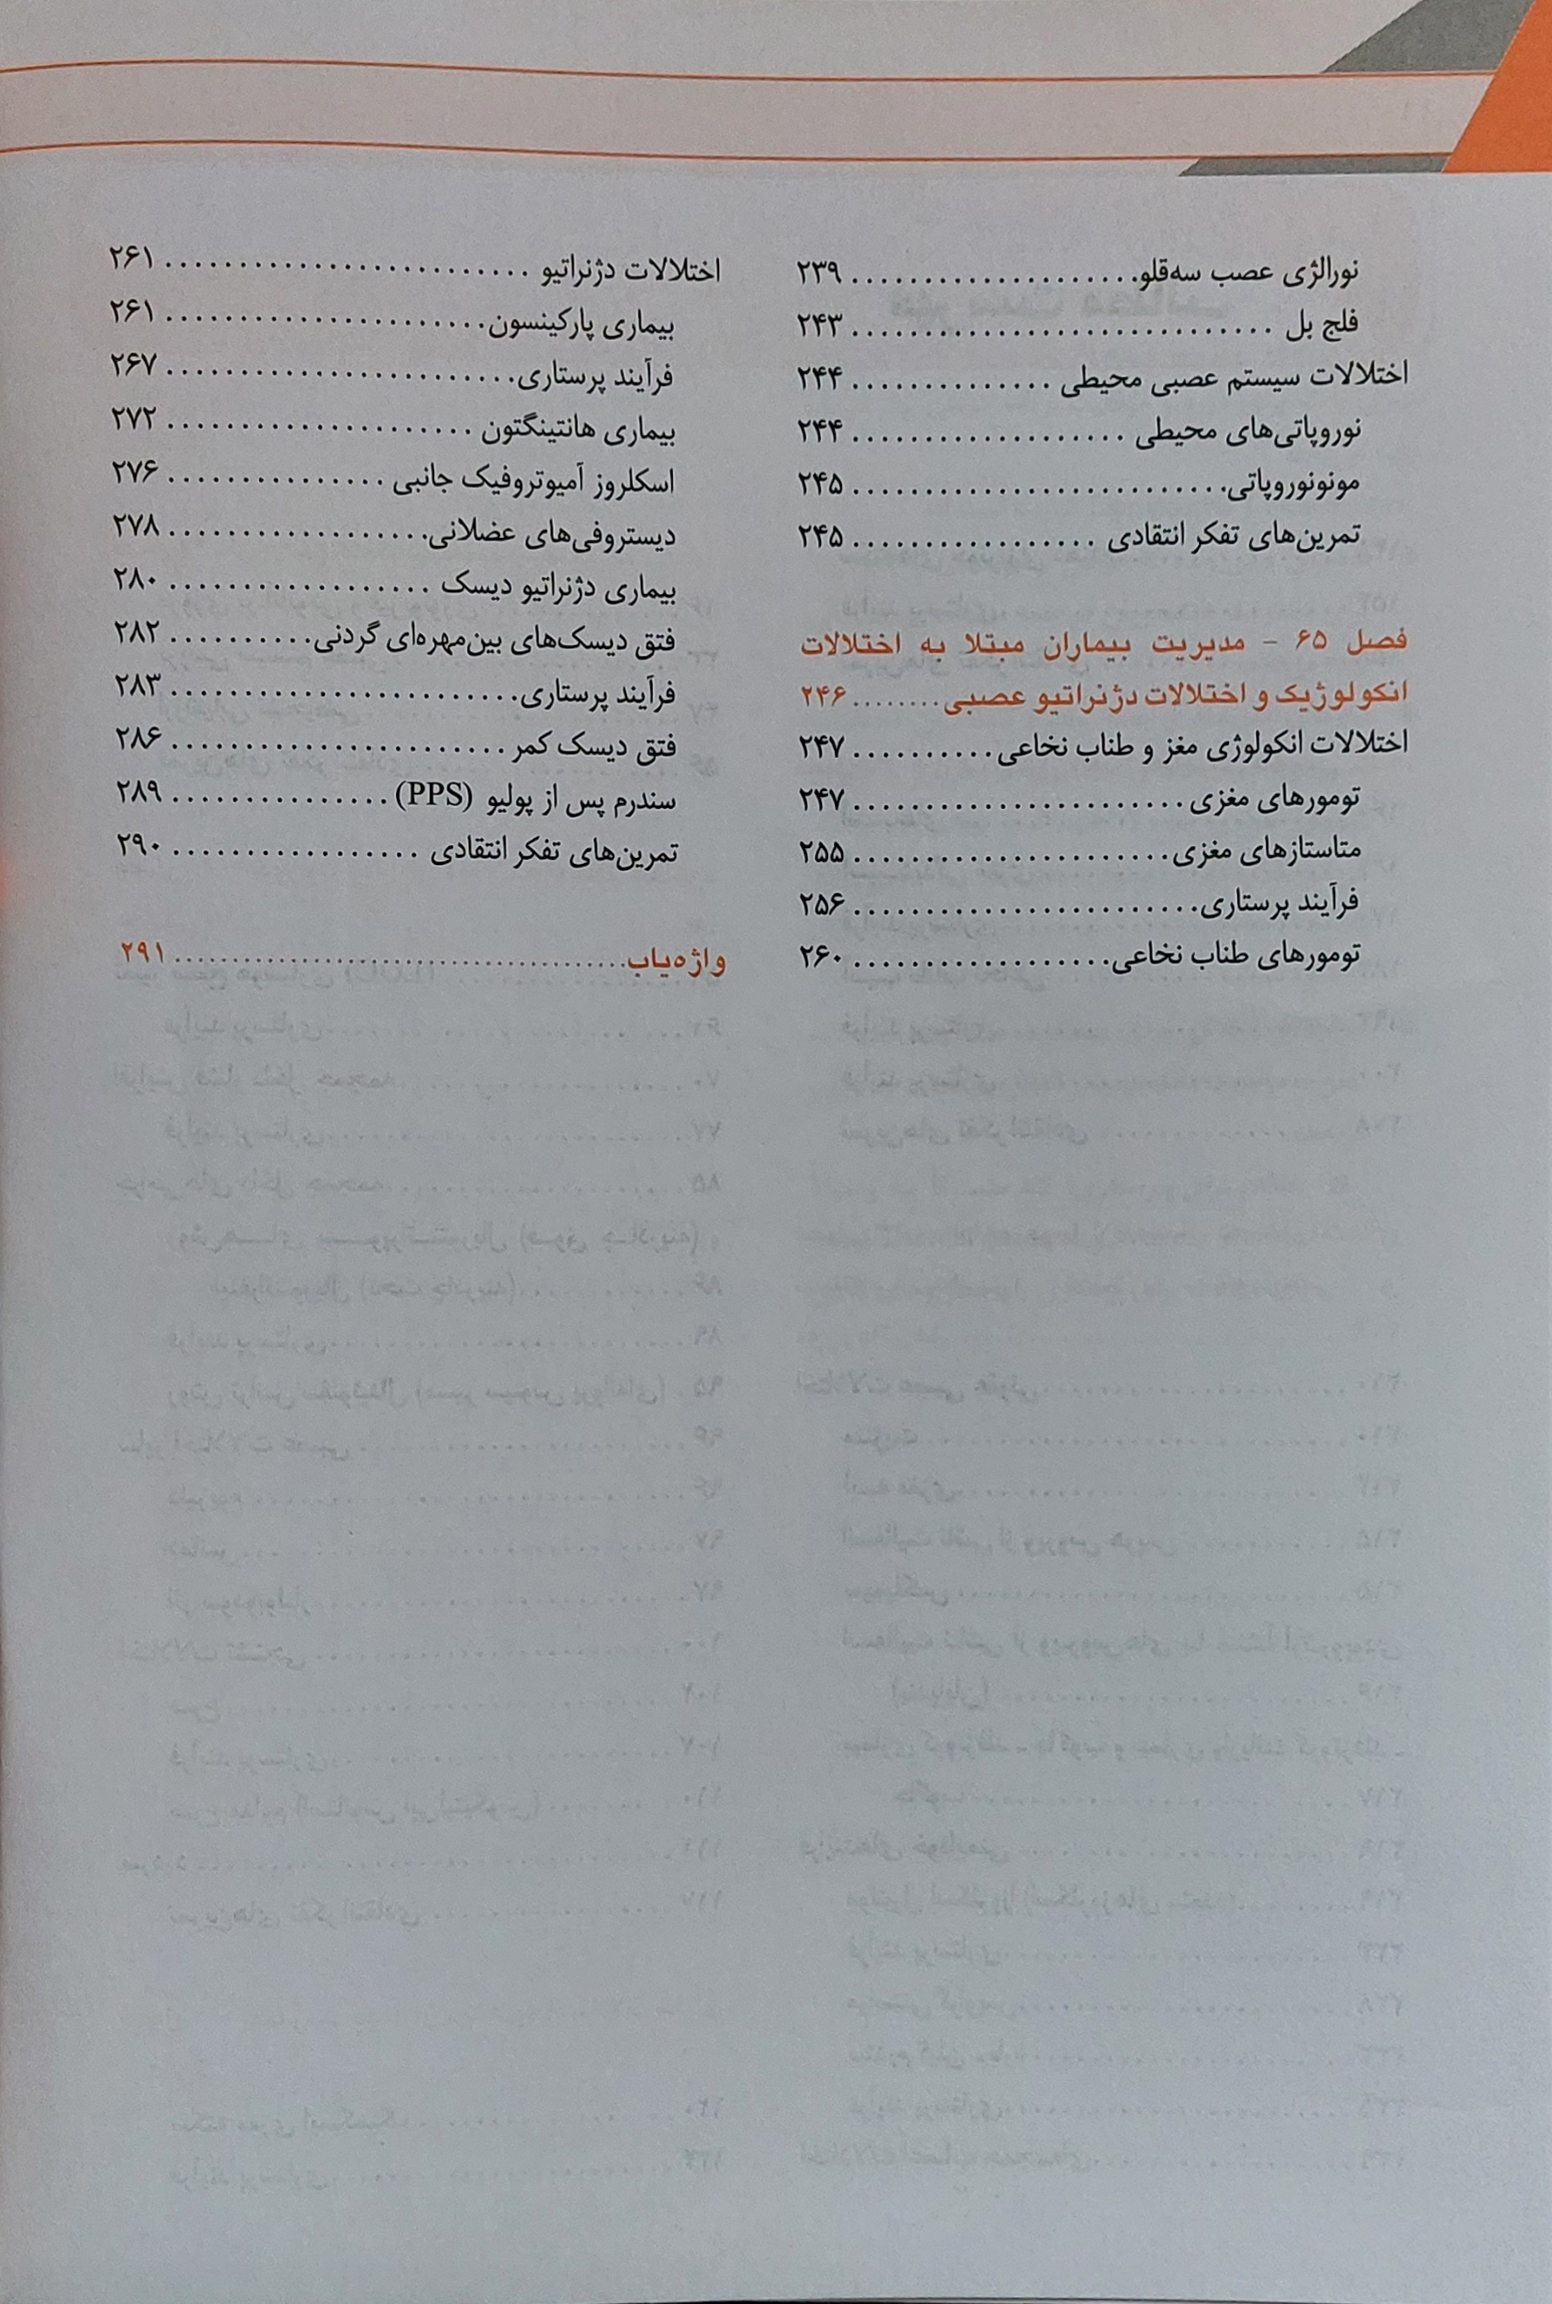 نورالژی عصب سه‌قلو..................... ۲۳۹
فلج بل .............................. ۲۴۳
اختلالات سیستم عصبی محیطی .............. ۲۴۴
نوروپاتی‌های محیطی ................... ۲۴۴
مونونوروپاتی.......................... ۲۴۵
تمرین‌های تفکر انتقادی ................. ۲۴۵
فصل ۶۵ - مدیریت بیماران مبتلا به اختلالات
انکولوژیک و اختلالات دژنراتیو عصبی......... ۲۴۶
اختلالات انکولوژی مغز و طناب نخاعی.......... ۲۴۷
تومورهای مغزی....................... ۲۴۷
متاستازهای مغزی...................... ۲۵۵
فرآیند پرستاری........................ ۲۵۶
تومورهای طناب نخاعی.................. ۲۶۰
اختلالات دژنراتیو ......................... ۲۶۱
بیماری پارکینسون...................... ۲۶۱
فرآیند پرستاری........................ ۲۶۷
بیماری هانتینگتون ..................... ۲۷۲
اسکلروز آمیوتروفیک جانبی ............... ۲۷۶
دیستروفی‌های عضلانی.................. ۲۷۸
بیماری دژنراتیو دیسک .................. ۲۸۰
فتق دیسک‌های بین‌مهره‌ای گردنی.......... ۲۸۲
فرآیند پرستاری........................ ۲۸۳
فتق دیسک کمر ....................... ۲۸۶
سندرم پس از پولیو (PPS) ............... ۲۸۹
تمرین‌های تفکر انتقادی ................. ۲۹۰
واژه‌یاب....................................... ۲۹۱